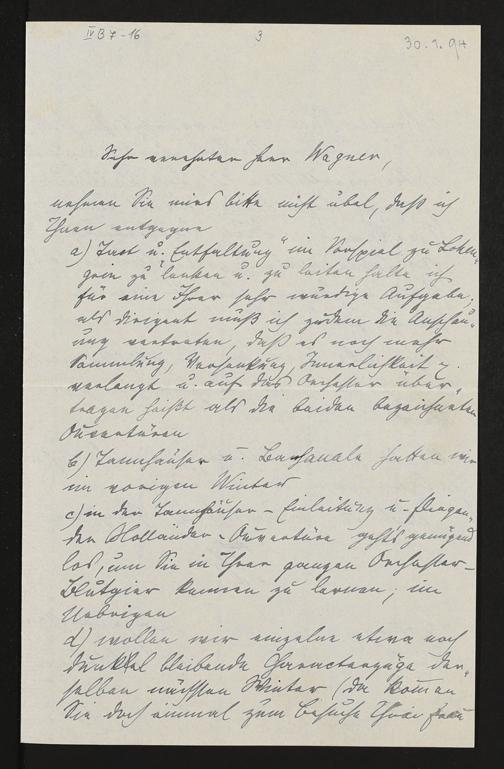 IV B 7 - 16
3
30. 9. 94
Sehr verehrter Herr Wagner,
nehmen Sie mirs bitte nicht übel, daß ich
Ihnen entgegne
a) Tact u. „Entfaltung“ im Vorspiel zu Lohen-
grin zu „lenken u. zu leiten halte ich
für eine Ihrer sehr würdige Aufgabe;
als Dirigent muß ich zudem die Anschau-
ung vertreten, daß es noch mehr
Sammlung, Versenkung, Innerlichkeit
verlangt u. auf das Orchester über-
tragen heißt als die beiden bezeichneten
Ouvertüren
b) Tannhäuser u. Bachanale hatten wir
im vorigen Winter
c) in der Tannhäuser-Einleitung u. fliegen-
der Holländer-Ouvertüre gehts genügend
los, um Sie in Ihrer ganzen Orchester-
Blutgier kennen zu lernen; im
Uebrigen
d) wollen wir einzelne etwa noch
dunkel bleibende Characterzüge der-
selben nächsten Winter (da kommen
Sie doch einmal zum Besuche Ihrer Frau